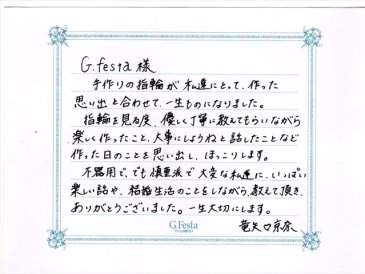 G.festa 様
手作りの指輪が私達にとって、作った
思い出と合わせて、一生ものになりました。
指輪を見る度、優しく丁寧に教えてもらいながら
楽しく作ったこと、大事にしようねと話したことなど
作った日のことを思い出し、ほっこりします。
不器用で、でも慎重派で大変な私達に、いっぱい
楽しい話や、結婚生活のことをしながら、教えて頂き、
ありがとうございました。一生大切にします。
G.Festa
竜矢♡京奈